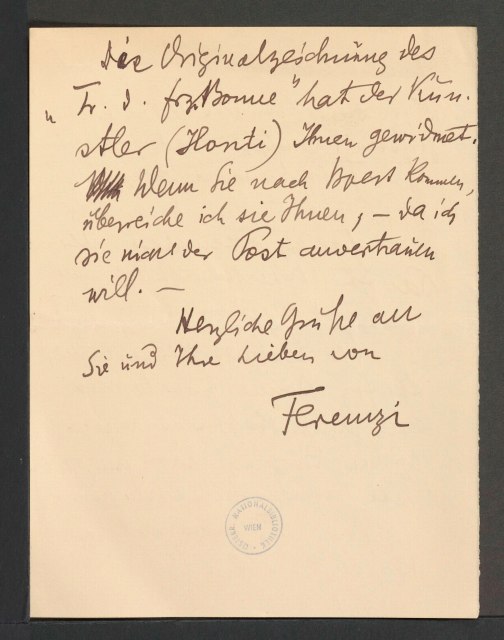 Die Originalzeichnung des
„Tr. d. frz. Bonne" hat der Kün-
stler (Honti) Ihnen gewidmet.
Wenn Sie nach Bpest kommen,
überreiche ich sie Ihnen, – da ich
sie nicht der Post anvertrauen
will. –
Herzliche Grüße an
Sie und Ihre Lieben von
Ferenczi
NATIONALBIBLIOTHEK
WIEN